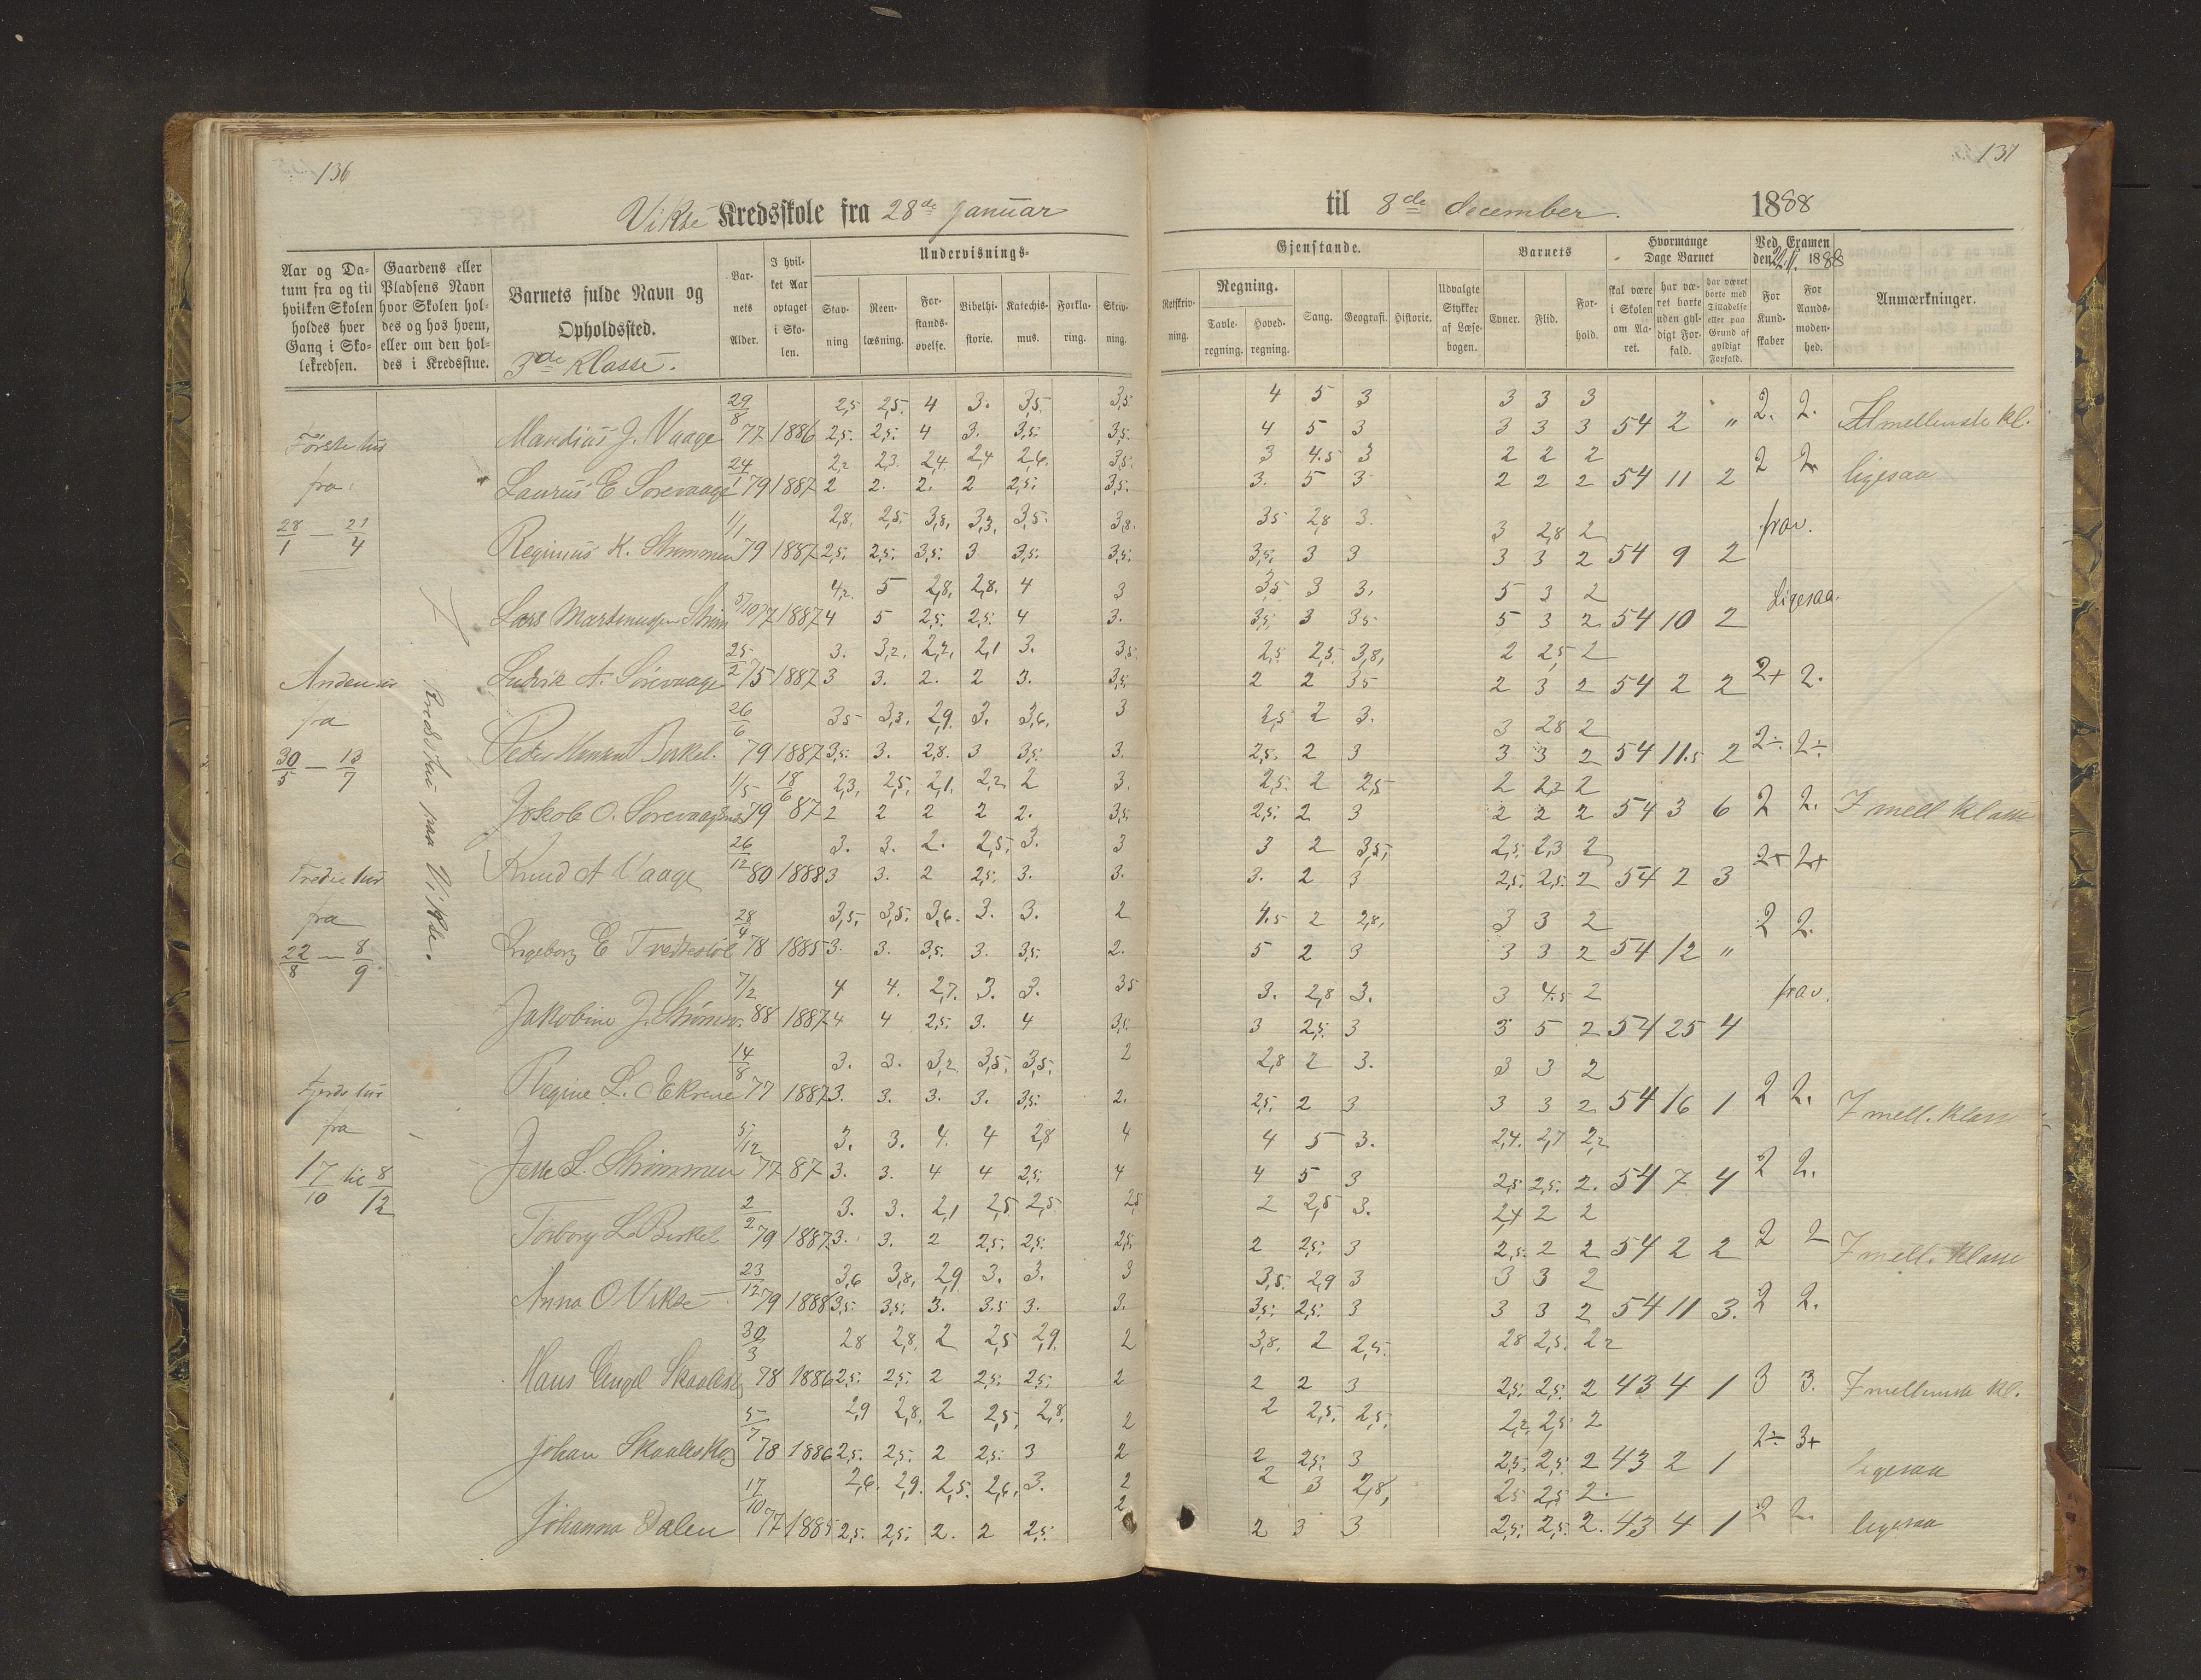 136
Vikse Kredsskole fra 28de Januar
Aar og Da-
tum fra og til
hvilken Skolen
holdes hver
Gang i Sko-
lekredsen.
Gaardens eller
Pladsens Navn
hvor Skolen hol-
des og hos hvem,
eller om den hol-
des i Kredsstue.
Barnets fulde Navn og
Opholdssted.
3de Klasse.
Bar-
nets
Alder.
I hvil-
ket Aar
optaget
i Sko-
len.
Undervisnings-
Stav-
ning
Reen-
læsning.
For-
stands-
øvelse.
Bibelhi-
storie.
Katechis-
mus.
Forkla-
ring.
Skriv-
ning.
Første tur
fra
28/1 — 21/4
Anden tur
fra
30/5 — 13/7
Tredie tur
fra
22/8 — 8/9
Fjerde tur
fra
17/10 til 8/12
Kredsstue paa Vikse.
29/8 2,5 2,5 4 3. 3,5 3,5
Mandius J. Vaage 77 1886 2,5 2,5 4 3. 3,5 3,5
24/1 2,2 2,3 2,4 2,4 2,6 3,5
Laurus E Sørevaage 79 1887 2 2. 2. 2 2,5 3,5
1/1 2,8 2,5 3,8 3,3 3,5 3,8
Reginius K. Strømmen 79 1887 2,5 2,5 3,5 3 3,5 3,5
5/10 4,2 5 2,8 2,8 4 3
Lars Martinussen Strøm 77 1887 4 5 2,5 2,5 4 3.
25/2 3. 3,2 2,2 2,1 3. 3,5
Ludvik A. Sørevaage 75 1887 3 3. 2. 2 3. 3,5
26/6 3,5 3,3 2,9 3. 3,6 3
Peder Hansen Birkel. 79 1887 3,5 3. 2,8 3 3,5 3.
1/5 18/6 2,3 2,5 2,1 2,2 2 3.
Jokob O. Sørevaagen 79 87 2 2 2 2 2. 3,5
26/12 3. 3. 2. 2,5 3. 3
Knud A Vaage 80 1888 3 3. 2 2,5 3. 3.
28/4 3,5 3,5 3,6 3. 3. 2
Ingeborg E Tveitestøl 78 1885 3. 3. 3,5 3. 3,5 2.
7/2 4 4. 2,7 3. 3. 3,5
Jakobine J. Strømsv. 88 1887 4 4 2,5 3. 4 3,5
14/8 3. 3. 3,2 3,5 3,5 2
Regine L. Ekrene 77 1887 3. 3. 3. 3. 3,5 2.
5/12 3. 3. 4. 4 2,8 4
Jette L. Strømmen 77 87 3. 3. 4 4 2,5 4
2/2 3. 3. 2,1 2,5 2,5 2,5
Torborg L Birkel 79 1887 3. 3. 2 2,5 2,5 2,5
23/12 3,6 3,8 2,9 3. 3. 3
Anna O Vikse 79 1888 3,5 3,5 3. 3.5 3. 3.
30/3 2,8 2,8 2 2,5 2,9 2
Hans Engel Skaalesk 78 1886 2,5 2,5 2 2,5 2,5 2
5/7 2,9 2,8 2 2,5 2,8 2
Johan Skaaleskog 78 1886 2,5 2,5 2 2,5 3 2
17/10 2,6 2,9 2,5 2,6 3. 2
Johanna Dalen 77 1885 2,5 2,5 2. 2 2,5 2
137
til 8de december. 1888
Gjenstande.
Retskriv-
ning.
Regning.
Tavle-
regning.
Hoved-
regning.
Sang.
Geografi.
Historie.
Udvalgte
Stykker
af Læse-
bogen.
Barnets
Evner.
Flid.
For-
hold.
Hvormange
Dage Barnet
skal være
i Skolen
om Aa-
ret.
har væ-
ret borte
uden gyl-
digt For-
fald.
har været
borte med
Tilladelse
eller paa
Grund af
gyldigt
Forfald.
Ved Examen
den 22/11 1888
For
Kund-
skaber
For
Aands-
moden-
hed.
Anmærkninger.
4 5 3 3 3 3
4 5 3 3 3 3 54 2 " 2. 2. I mellenste Kl.
3 4.5 3 2 2 2
3. 5 3 2 2 2 54 11 2 2 2. ligesaa
3,5 2,8 3. 3 2,8 2
3,5 3 3 3 3 2 54 9 2 frav.
3,5 3 3. 5 3 2
3,5 3 3,5 5 3 2 54 10 2 Ligesaa.
2,5 2,5 3,8 2 2,5 2
2 2 3,5 2 3 2 54 2 2 2+ 2.
2,5 2 3. 3 2,8 2
2,5 2 3 3 3 2 54 11.5 2 2÷ 2÷
2,5 2 2,5 2 2,2 2
2,5 2 3 2 2 2 54 3 6 2 2. I mell Klasse
3 2 3,5 2,5 2,3 2
3. 2 3 2,5 2,5 2 54 2 3 2+ 2+
4.5 2 2,8 3 3 2
5 2 3 3 3 2 54 12 " 2 2.
3. 2,8 3. 3 4.5 2
3 2,5 3 3 5 2 54 25 4 frav.
2,8 2 3. 3 3 2
2,5 2 3 3 3 2 54 16 1 2 2. I mell. Klass
4 5 3. 2,4 2,7 2,2
4 5 3 2,5 2,5 2. 54 7 4 2 2.
2 2,5 3. 2,4 2 2
2 2,5 3 2,5 2 2 54 2 2 2 2 I mell. Klasse
3,5 2,9 3 3 3 2
3,5 2,5 3 3 3 2 54 11 3. 2 2.
3,8 2 2,5 2,8 2,5 2,2
2 2 3 2,5 2,5 2 43 4 1 3 3. I mellemste Kl.
2 2,5 2,5 2,2 2,5 2
2 2,5 3 2,5 2,5 2 43 2 1 2÷ 3+ ligesaa
2 3 2,8 2,5 2,5 2.
2 3 3 2,5 2,5 2. 43 4 1 2 2. ligesaa